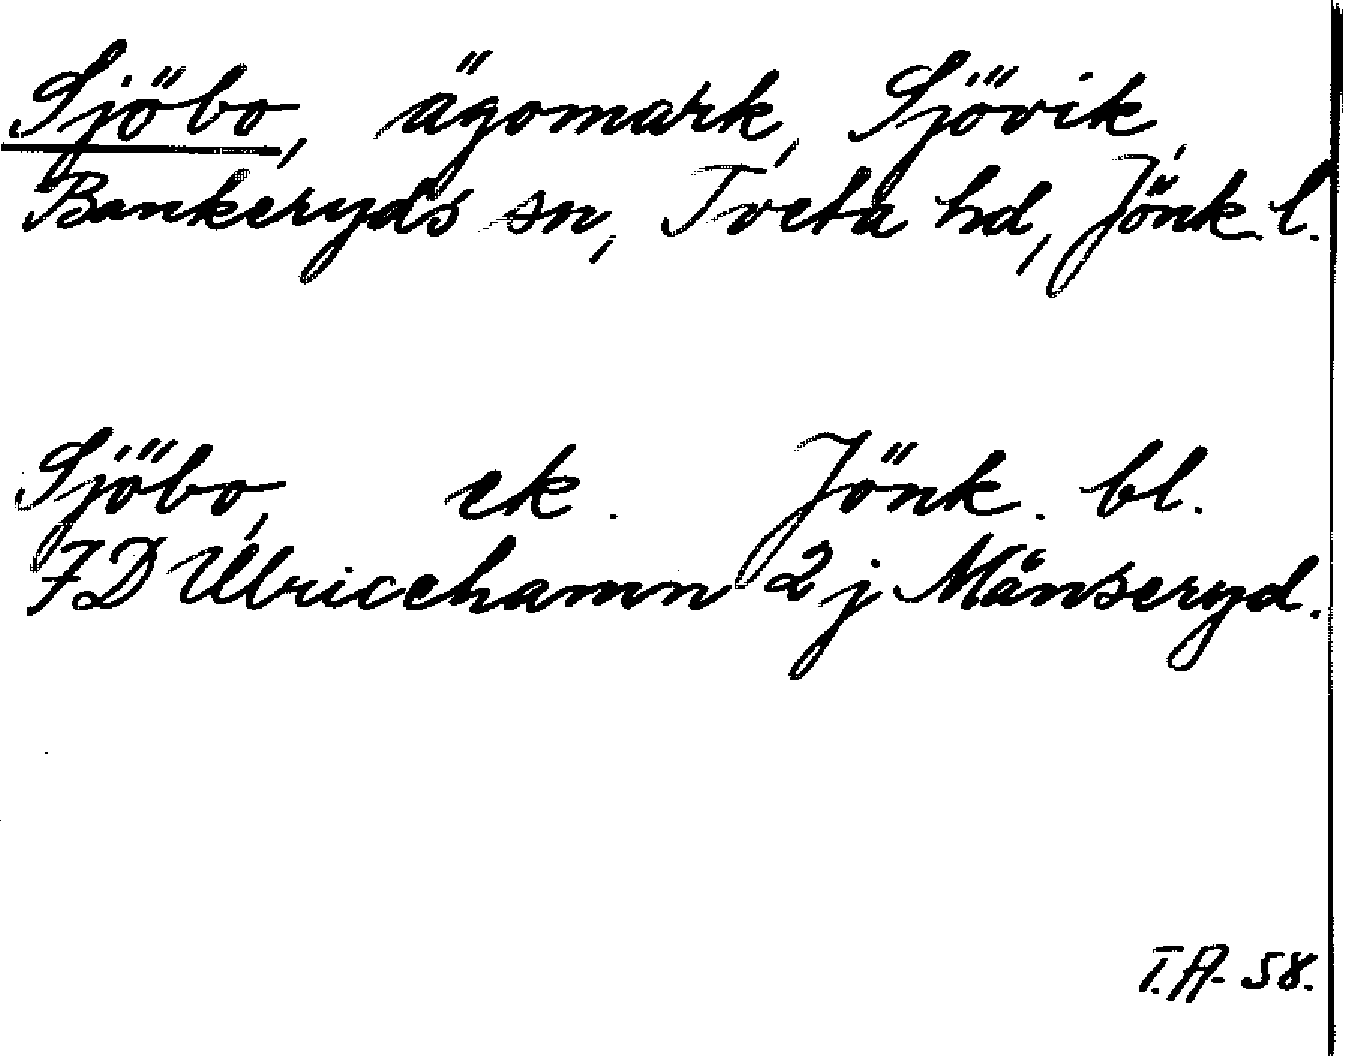 Sjöbo, ägomark, Sjövik,
Bankeryds sn, Tveta hd, Jönk. l.
Sjöbo, ek. Jönk. bl.
7D Ulricehamn 2j Månseryd.
T.A. 58.